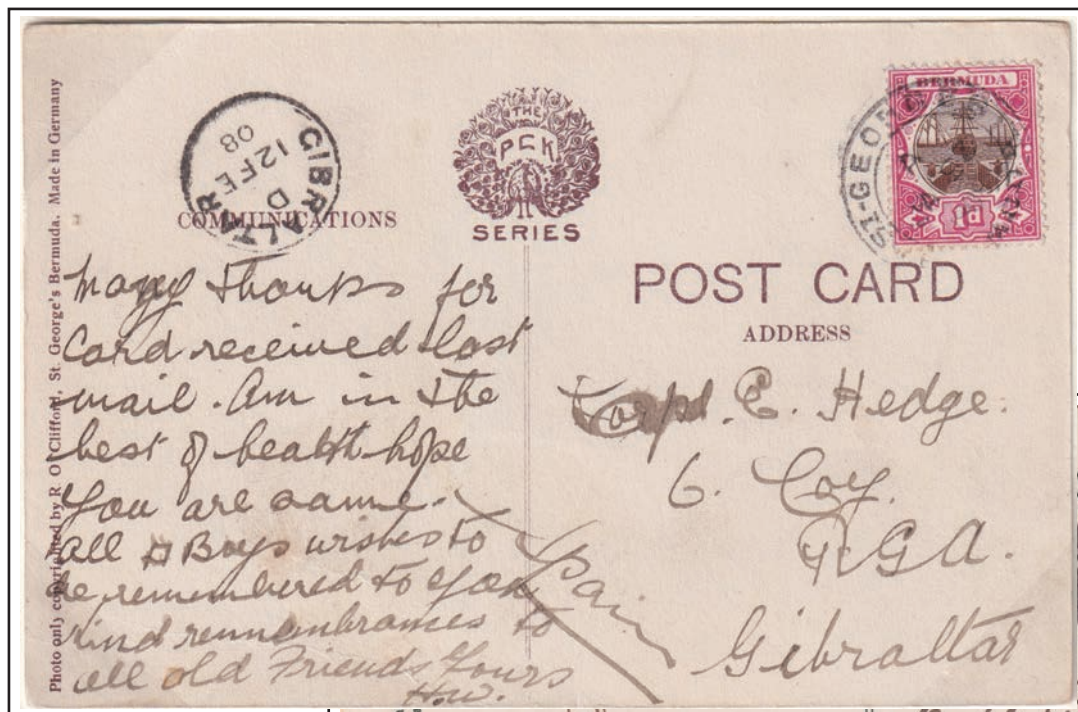 Photo only copyrighted by R O Clifford, St. George's Bermuda. Made in Germany
GIBRALTAR
D
12 FE
08
THE
PCK
SERIES
BERMUDA
1d
ST-GEORGES
COMMUNICATIONS
POST CARD
ADDRESS
Many thanks for
Card received last
mail. Am in the
best of health hope
you are same.
all Boys wishes to
be remembered to you
Kind remembrances to
all old Friends Yours
H.W.
Corpl. E. Hedge.
6. Coy.
RGA.
Gibraltar
Spain